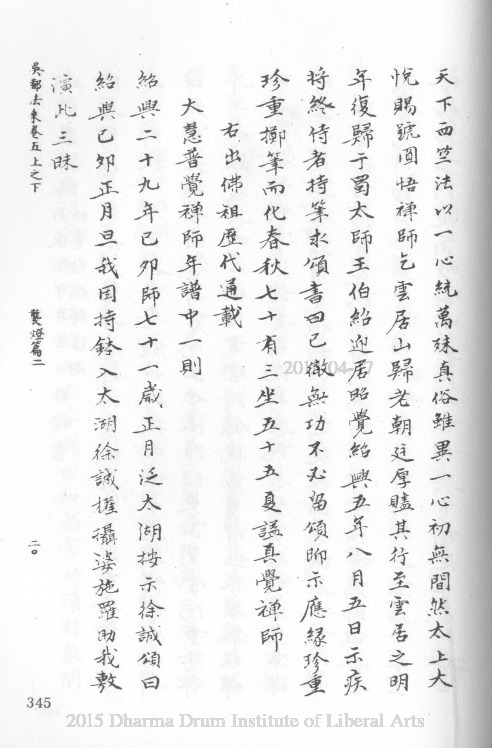 天下西竺法以一心統萬殊真俗雖異一心初無間然太上大
悅賜號圓悟禪師乞雲居山歸老朝廷厚贐其行至雲居之明
年復歸于蜀太師王伯紹迎居昭覺紹興五年八月五日示疾
將終侍者持筆求頌書曰已徹無功不必留頌聊示應緣珍重
珍重擲筆而化春秋七十有三坐五十五夏謚真覺禪師
右出佛祖歷代通載
大慧普覺禪師年譜中一則
紹興二十九年己卯師七十一歲正月泛太湖按示徐誠頌曰
紹興己卯正月旦我因持鉢入太湖徐誠權攝婆施羅助我敷
演此三昧
吳都法乘卷五上之下
樊燈篇二
二〇
345
2015 Dharma Drum Institute of Liberal Arts